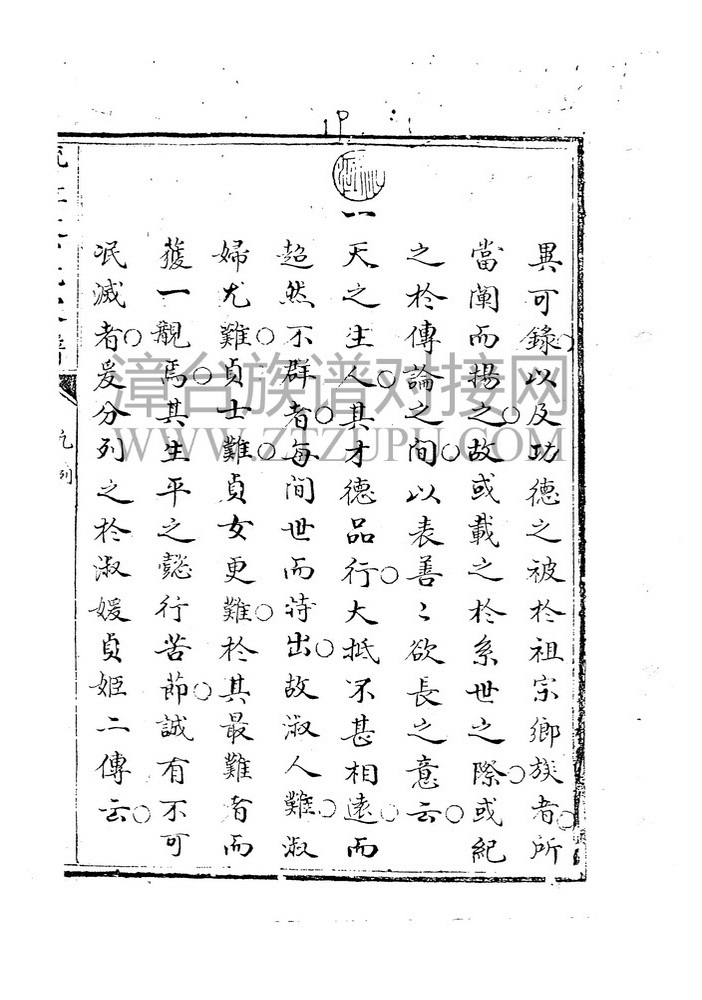 異可錄○以及功德之被於祖宗鄉族者○所
當闡而揚之○故或載之於系世之際○或紀
之於傳論之間○以表善〻欲長之意云○
一天之生人○其才德品行○大抵不甚相遠○而
超然不群者○每間世而特出○故淑人難○淑
婦尤難○貞士難○貞女更難○於其最難者而
獲一覯焉○其生平之懿行苦節○誠有不可
泯滅者○爰分列之於淑媛貞姬二傳云○
凡例
漳台族谱对接网
WWW.ZTZUPU.COM